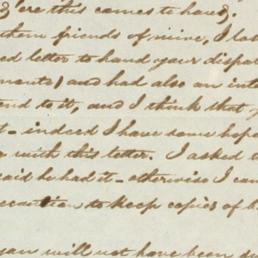 ere this comes to hand).
them friends of mine, I
ed letter to hand your
ments) and had also an
end to it, and I think that
t - indeed I have some hope
with this letter. I asked
said he had it - otherwise I can
ecaution to keep copies of
you will not have been